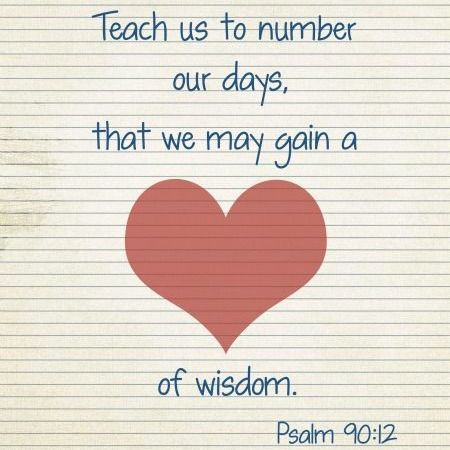 Teach us to number
our days,
that we may gain a
of wisdom.
Psalm 90:12